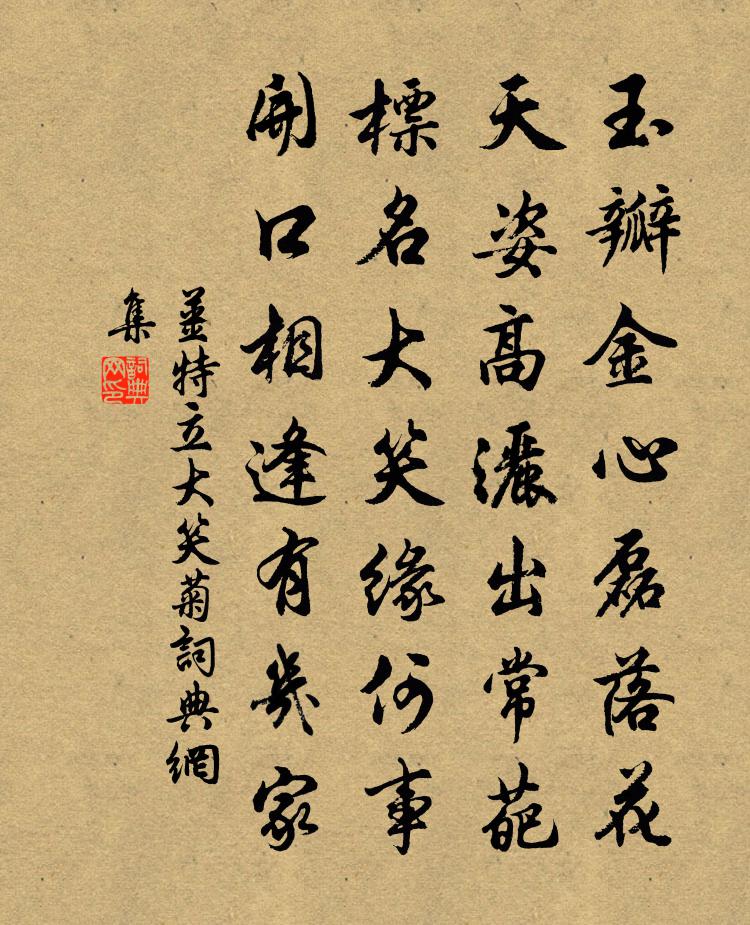 玉瓣金心磊落花
天姿高灑出常葩
標名大笑緣何事
開口相逢有幾家
姜特立大笑菊詞典網
集
詞典網印